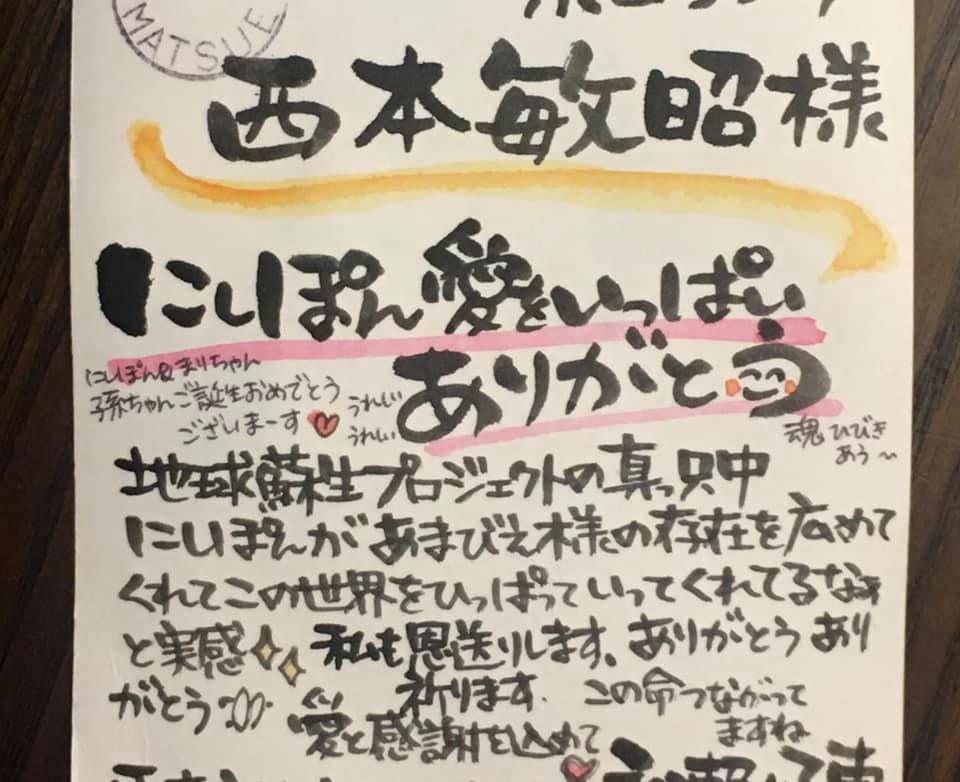 MATSUE
西本敏昭様
にしぽん愛をいっぱい
ありがとう
にしぽん&まりちゃん
孫ちゃんご誕生おめでとう
ございまーす
うれしい
うれしい
魂ひびき
あう〜
地球蘇生プロジェクトの真っ只中
にしぽんがあまびえ様の存在を広めて
くれてこの世界をひっぱっていってくれてるなぁ
と実感 私も恩送りします。ありがとう あり
がとう
祈ります.
この命つながって
ますね
愛と感謝を込めて